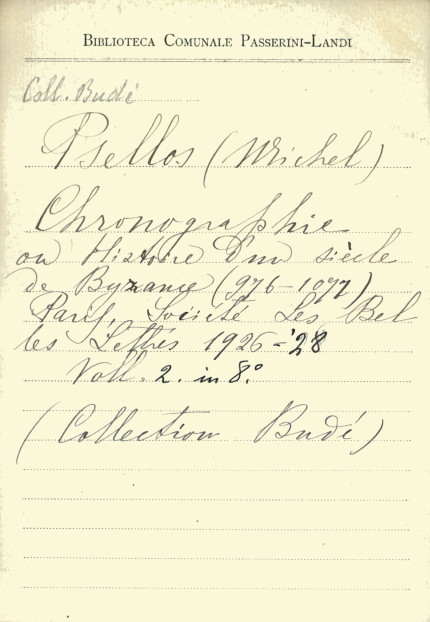 BIBLIOTECA COMUNALE PASSERINI-LANDI
Coll. Budé
Psellos (Michel)
Chronographie
ou Histoire d'un siècle
de Byzance (976-1077)
Paris, Société Les Bel
les Lettres 1926-'28
Voll. 2. in 8.°
(Collection Budé)